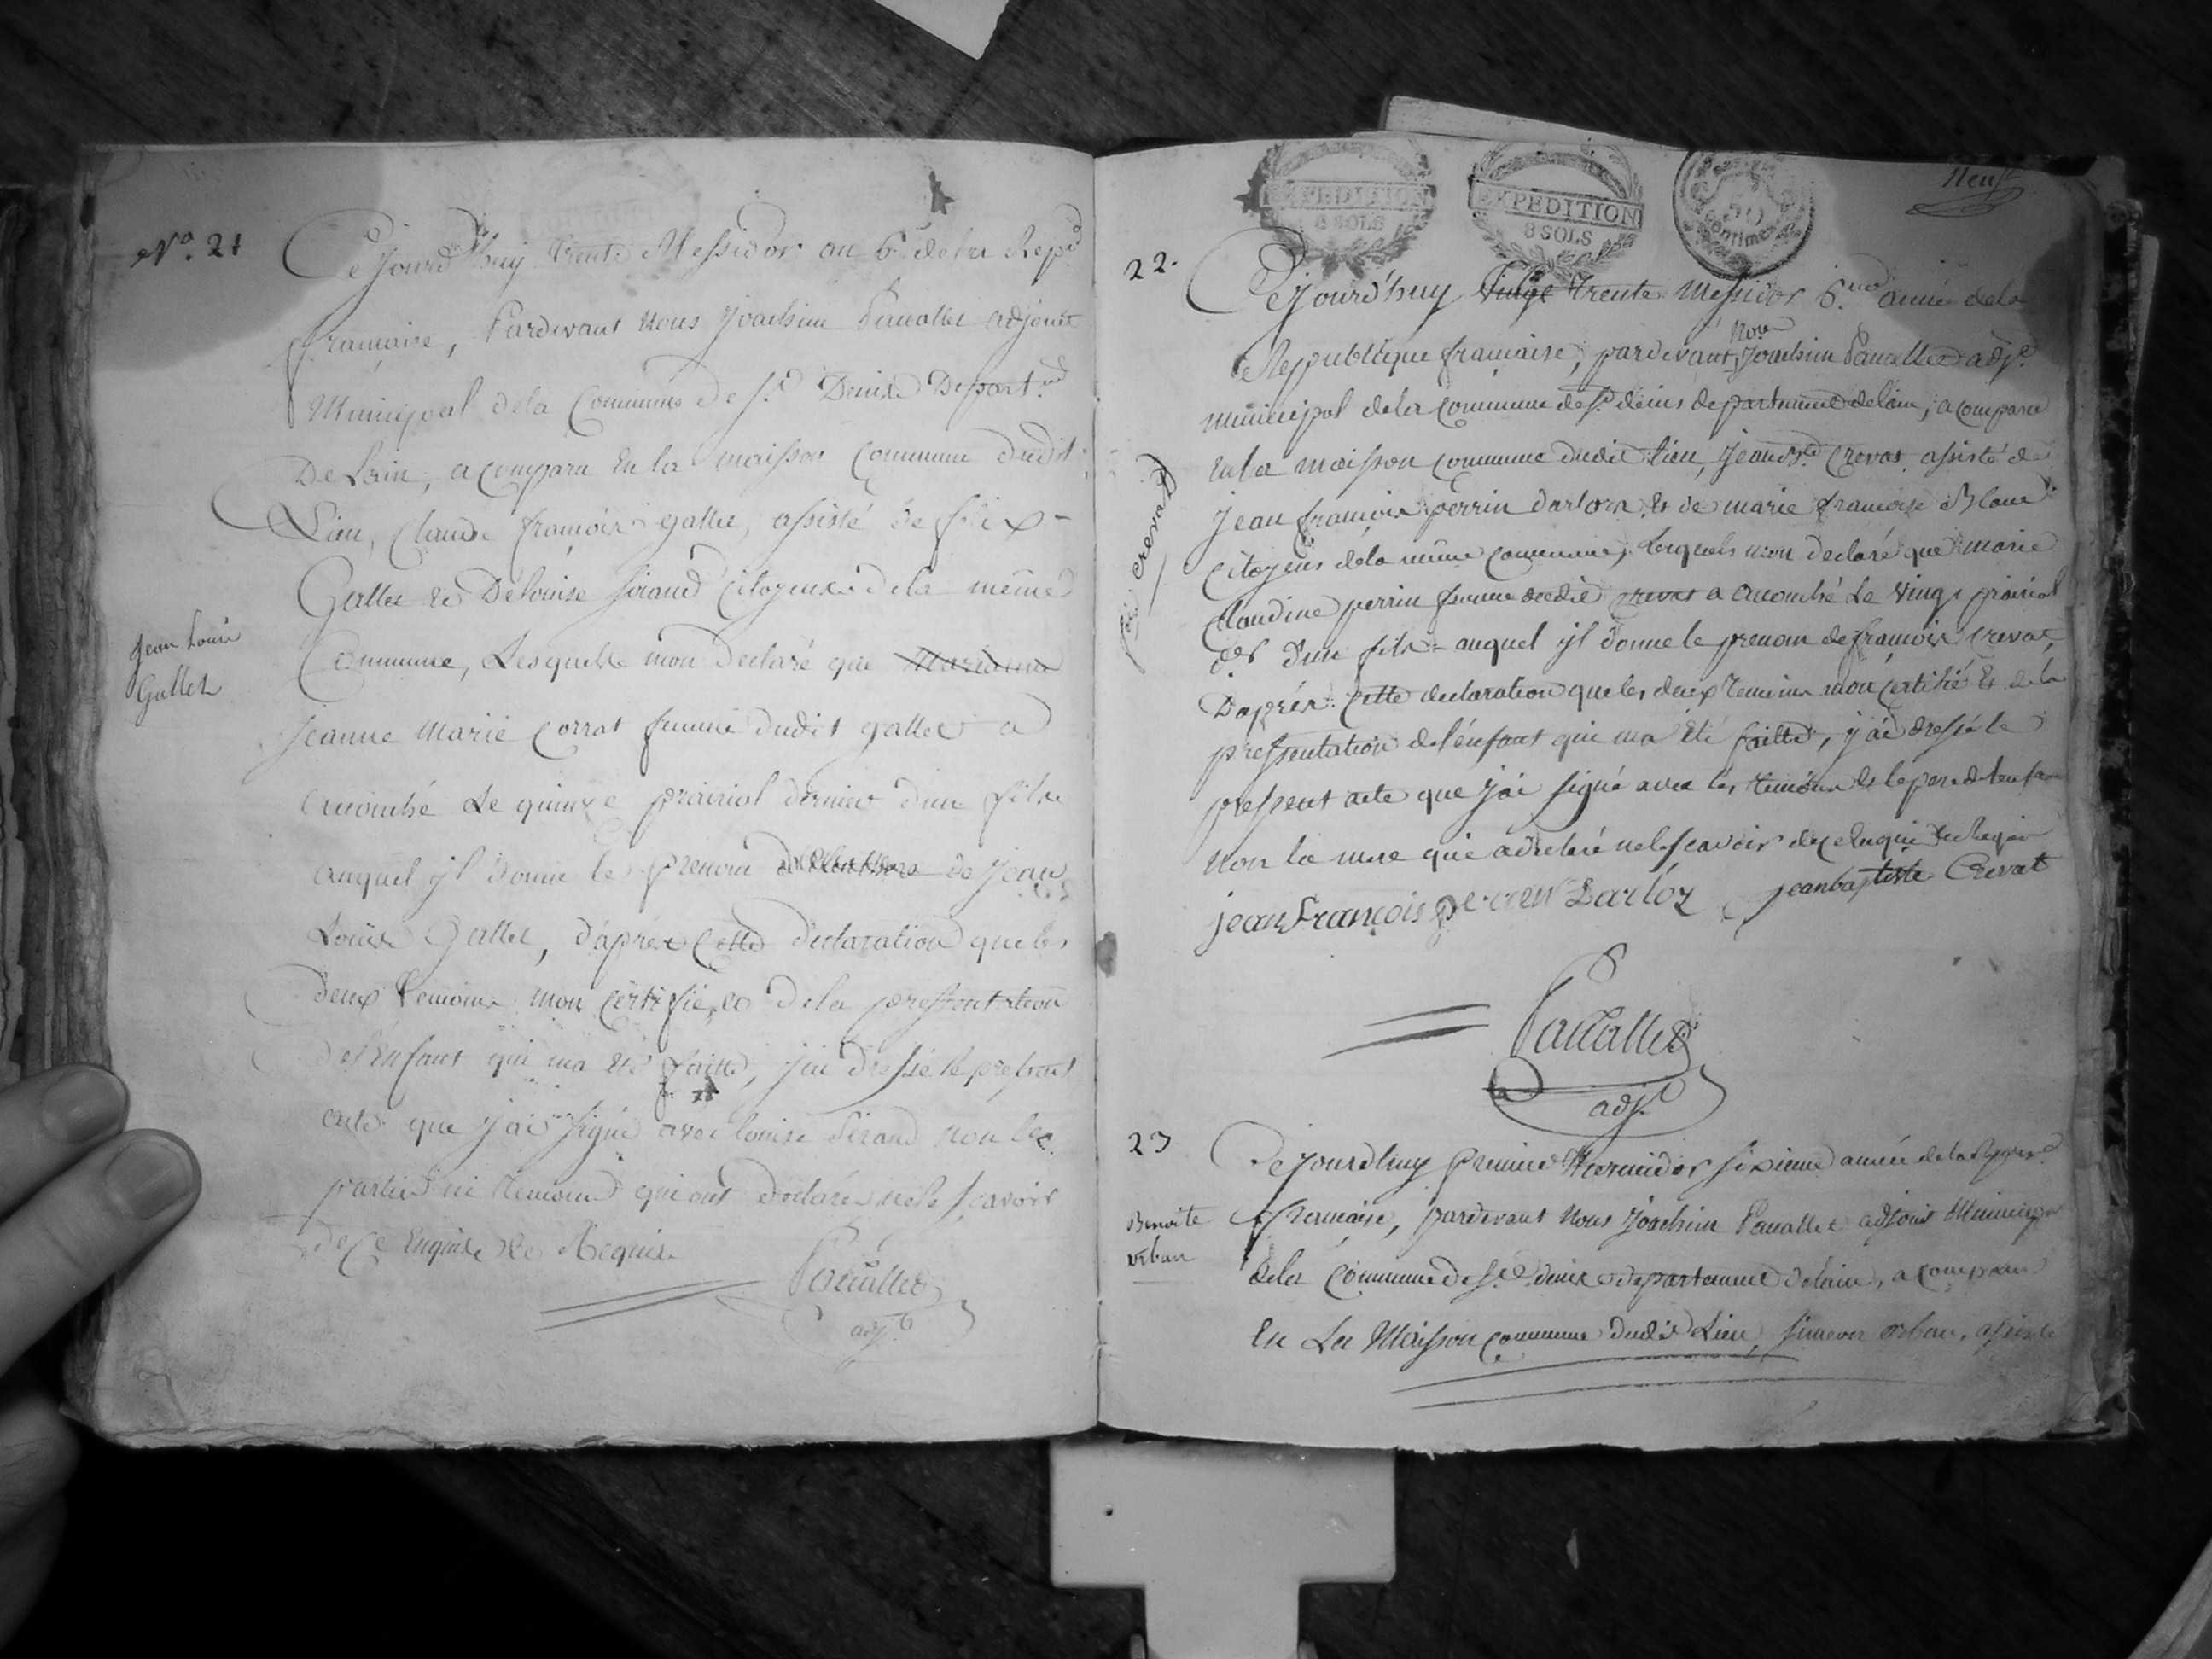 No. 21
Cejourd'huy trente Messidor an 6e dela Repe
française, Pardevant Nous Joachim Pauallet adjoint
Municipal dela Commune de St. Denis Depart.
De Lain, a comparu En la maisson Commune dudit
Lieu, Claude françois gallet, assisté de felix
Gallet et De louise Siraud Citoyens dela même
Commune, Lesquels mon Declaré que Marianne
Jean Louis
Gallet
jeanne Marie Corrat femme dudit gallet a
accouché Le quinze prairial dernier d'un fils
auquel jl donne le prenom de jean
Louis Gallet, d'après Cette declaration que les
deux temoins mon certifié, et dela pressentation
del'Enfant qui ma été faitte, j'ai dressé le pressent
acte que j'ai signé avec louise Siraud non les
parties ni temoins qui ont declarés ne le sçavoir
de Ce Enquis et Requis.
Pauallet
adjt
Neuf
EXPEDITION
8 SOLS
EXPEDITION
8 SOLS
50
Centimes
22.
Cejourd'huy Vingt trente Messidor 6.me année dela
Republique française, pardevant Nous Joachim Pauallet adjt
municipal dela commune de St. denis departement delain, a comparu
en la maisson commune dudit lieu, jean bte Crevat, assisté de
jean françois perrin darloz Et de marie françoise Blanc
Citoyens dela même commune, lesquels mon declaré que marie
Claudine perrin femme dudit Crevat a accouché Le Vingt prairial
der d'un fils auquel jl donne le prenom de françois Crevat,
Daprés Cette declaration que les deux temoins mon certifié Et dela
pressentation del'enfant qui ma été faitte, j'ai dressé le
pressent acte que j'ai signé avec les temoins Et le pere de lenfan
non la mere qui a declaré ne le scavoir de ce Enquis Et Requis
crevat
jean François perrin Darloz jean baptiste Crevat
Pauallet
adjt
23
Cejourdhuy premier thermidor sixieme année dela Repu
Benoite
orban
française, pardevant Nous Joachim Pauallet adjoint Municipal
dela Commune de St. denis departement delain, a comparu
En La Maisson commune dudit Lieu, simeon orban, assisté